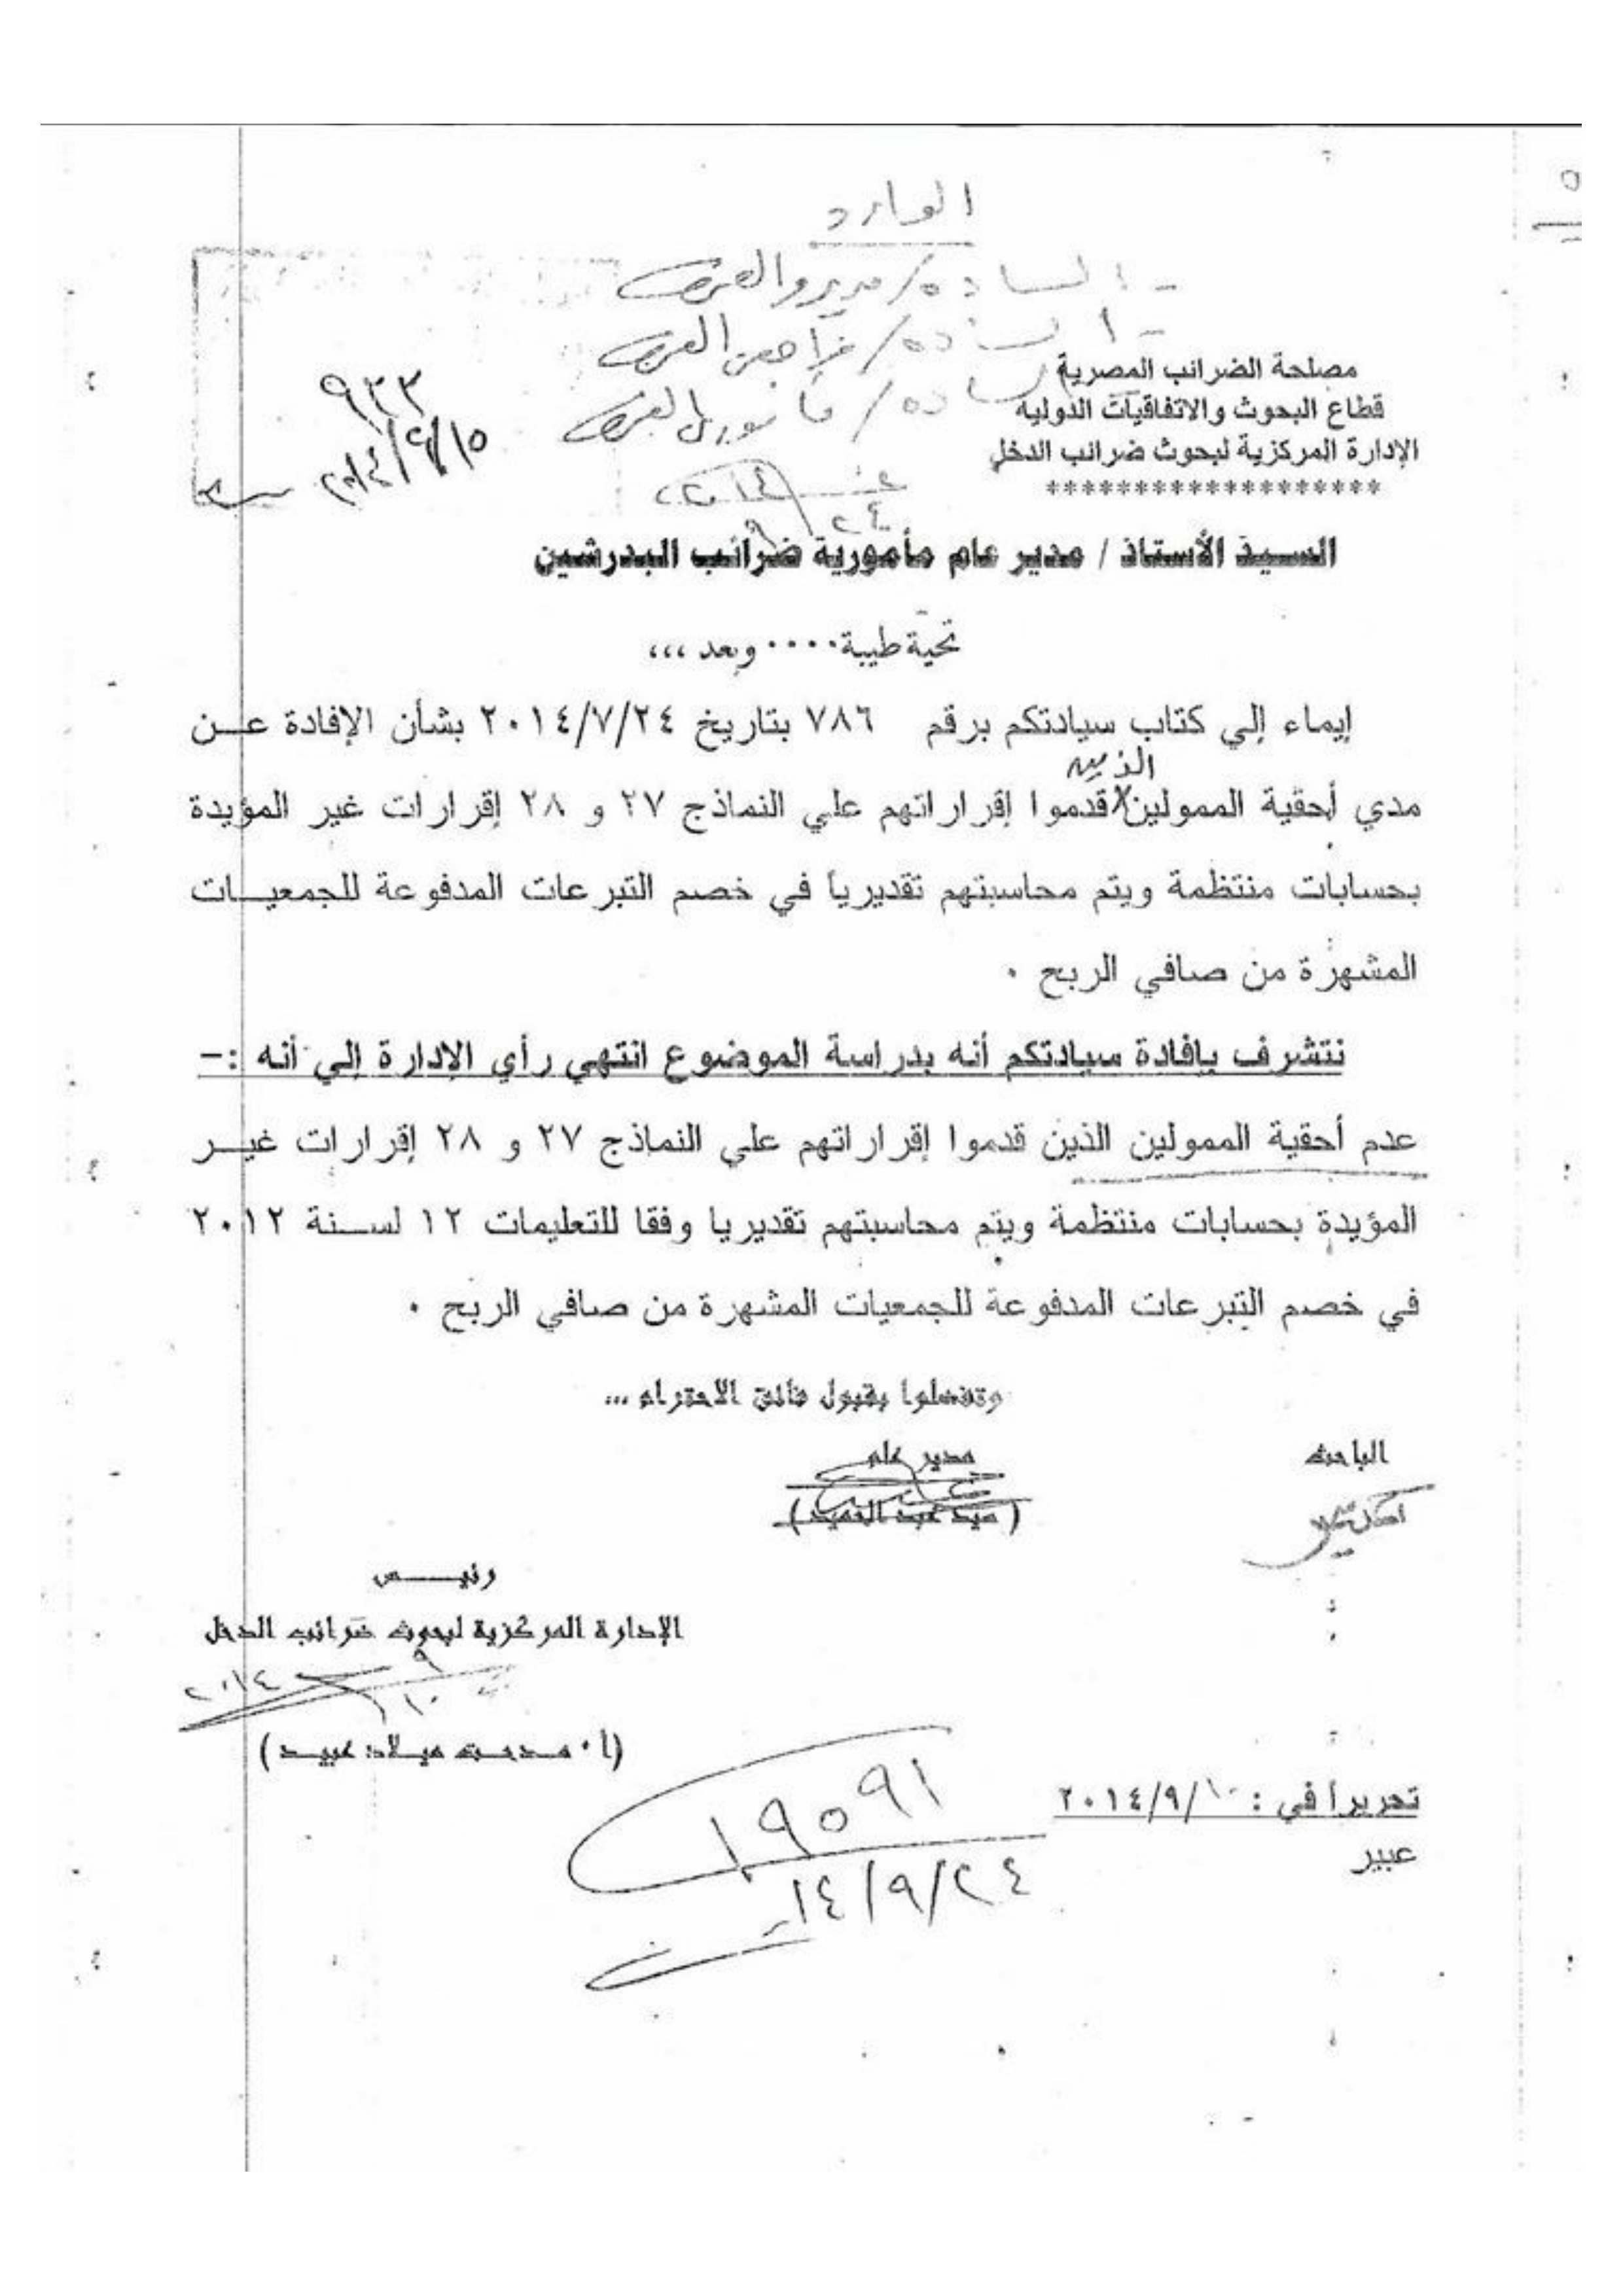 الوارد
- السادة / مديرو الفحص
- السادة / مراجعى الفحص
السادة / مأمورى الفحص
٢٠١٤
٩٣٣
مصلحة الضرائب المصرية
قطاع البحوث والاتفاقيات الدولية
الإدارة المركزية لبحوث ضرائب الدخل
*******************
السيد الأستاذ / مدير عام مأمورية ضرائب البدرشين
تحية طيبة .... وبعد ،،،
إيماء إلي كتاب سيادتكم برقم ٧٨٦ بتاريخ ٢٠١٤/٧/٢٤ بشأن الإفادة عن
مدي أحقية الممولين الذين قدموا إقراراتهم علي النماذج ٢٧ و ٢٨ إقرارات غير المؤيدة
بحسابات منتظمة ويتم محاسبتهم تقديرياً في خصم التبرعات المدفوعة للجمعيات
المشهرة من صافي الربح .
نتشرف بإفادة سيادتكم أنه بدراسة الموضوع انتهي رأي الإدارة إلي أنه :-
عدم أحقية الممولين الذين قدموا إقراراتهم علي النماذج ٢٧ و ٢٨ إقرارات غير
المؤيدة بحسابات منتظمة ويتم محاسبتهم تقديريا وفقا للتعليمات ١٢ لسنة ٢٠١٢
في خصم التبرعات المدفوعة للجمعيات المشهرة من صافي الربح .
وتفضلوا بقبول فائق الاحترام ...
الباحث
مدير عام
(سيد عبد الحميد)
رئيس
الإدارة المركزية لبحوث ضرائب الدخل
٩/١٠ ٢٠١٤
(أ. مدحت ميلاد عبيد)
تحريراً في : ٢٠١٤/٩/١٠
عبير
١٩٥٩١
١٤/٩/٢٤